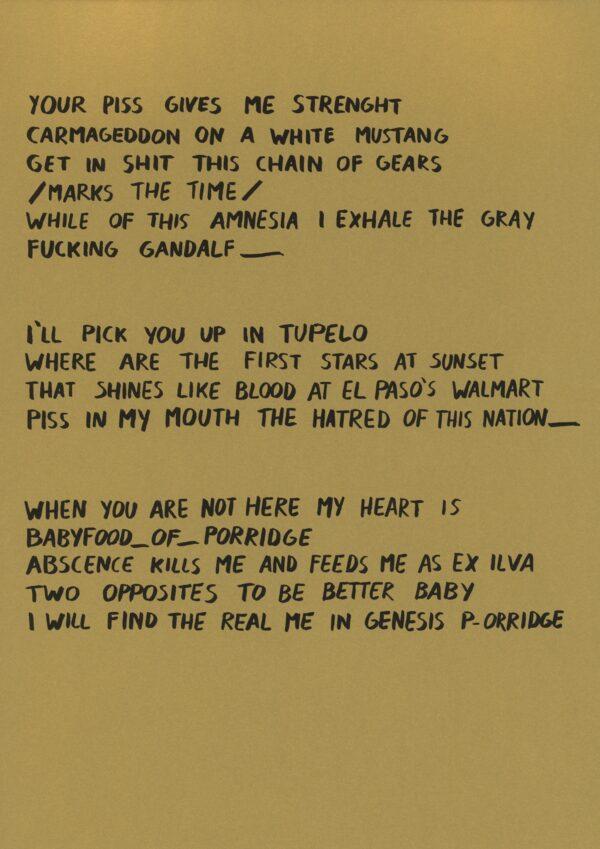 YOUR PISS GIVES ME STRENGHT
CARMAGEDDON ON A WHITE MUSTANG
GET IN SHIT THIS CHAIN OF GEARS
/MARKS THE TIME/
WHILE OF THIS AMNESIA I EXHALE THE GRAY
FUCKING GANDALF__
I'LL PICK YOU UP IN TUPELO
WHERE ARE THE FIRST STARS AT SUNSET
THAT SHINES LIKE BLOOD AT EL PASO'S WALMART
PISS IN MY MOUTH THE HATRED OF THIS NATION__
WHEN YOU ARE NOT HERE MY HEART IS
BABYFOOD_OF_PORRIDGE
ABSCENCE KILLS ME AND FEEDS ME AS EX ILVA
TWO OPPOSITES TO BE BETTER BABY
I WILL FIND THE REAL ME IN GENESIS P-ORRIDGE